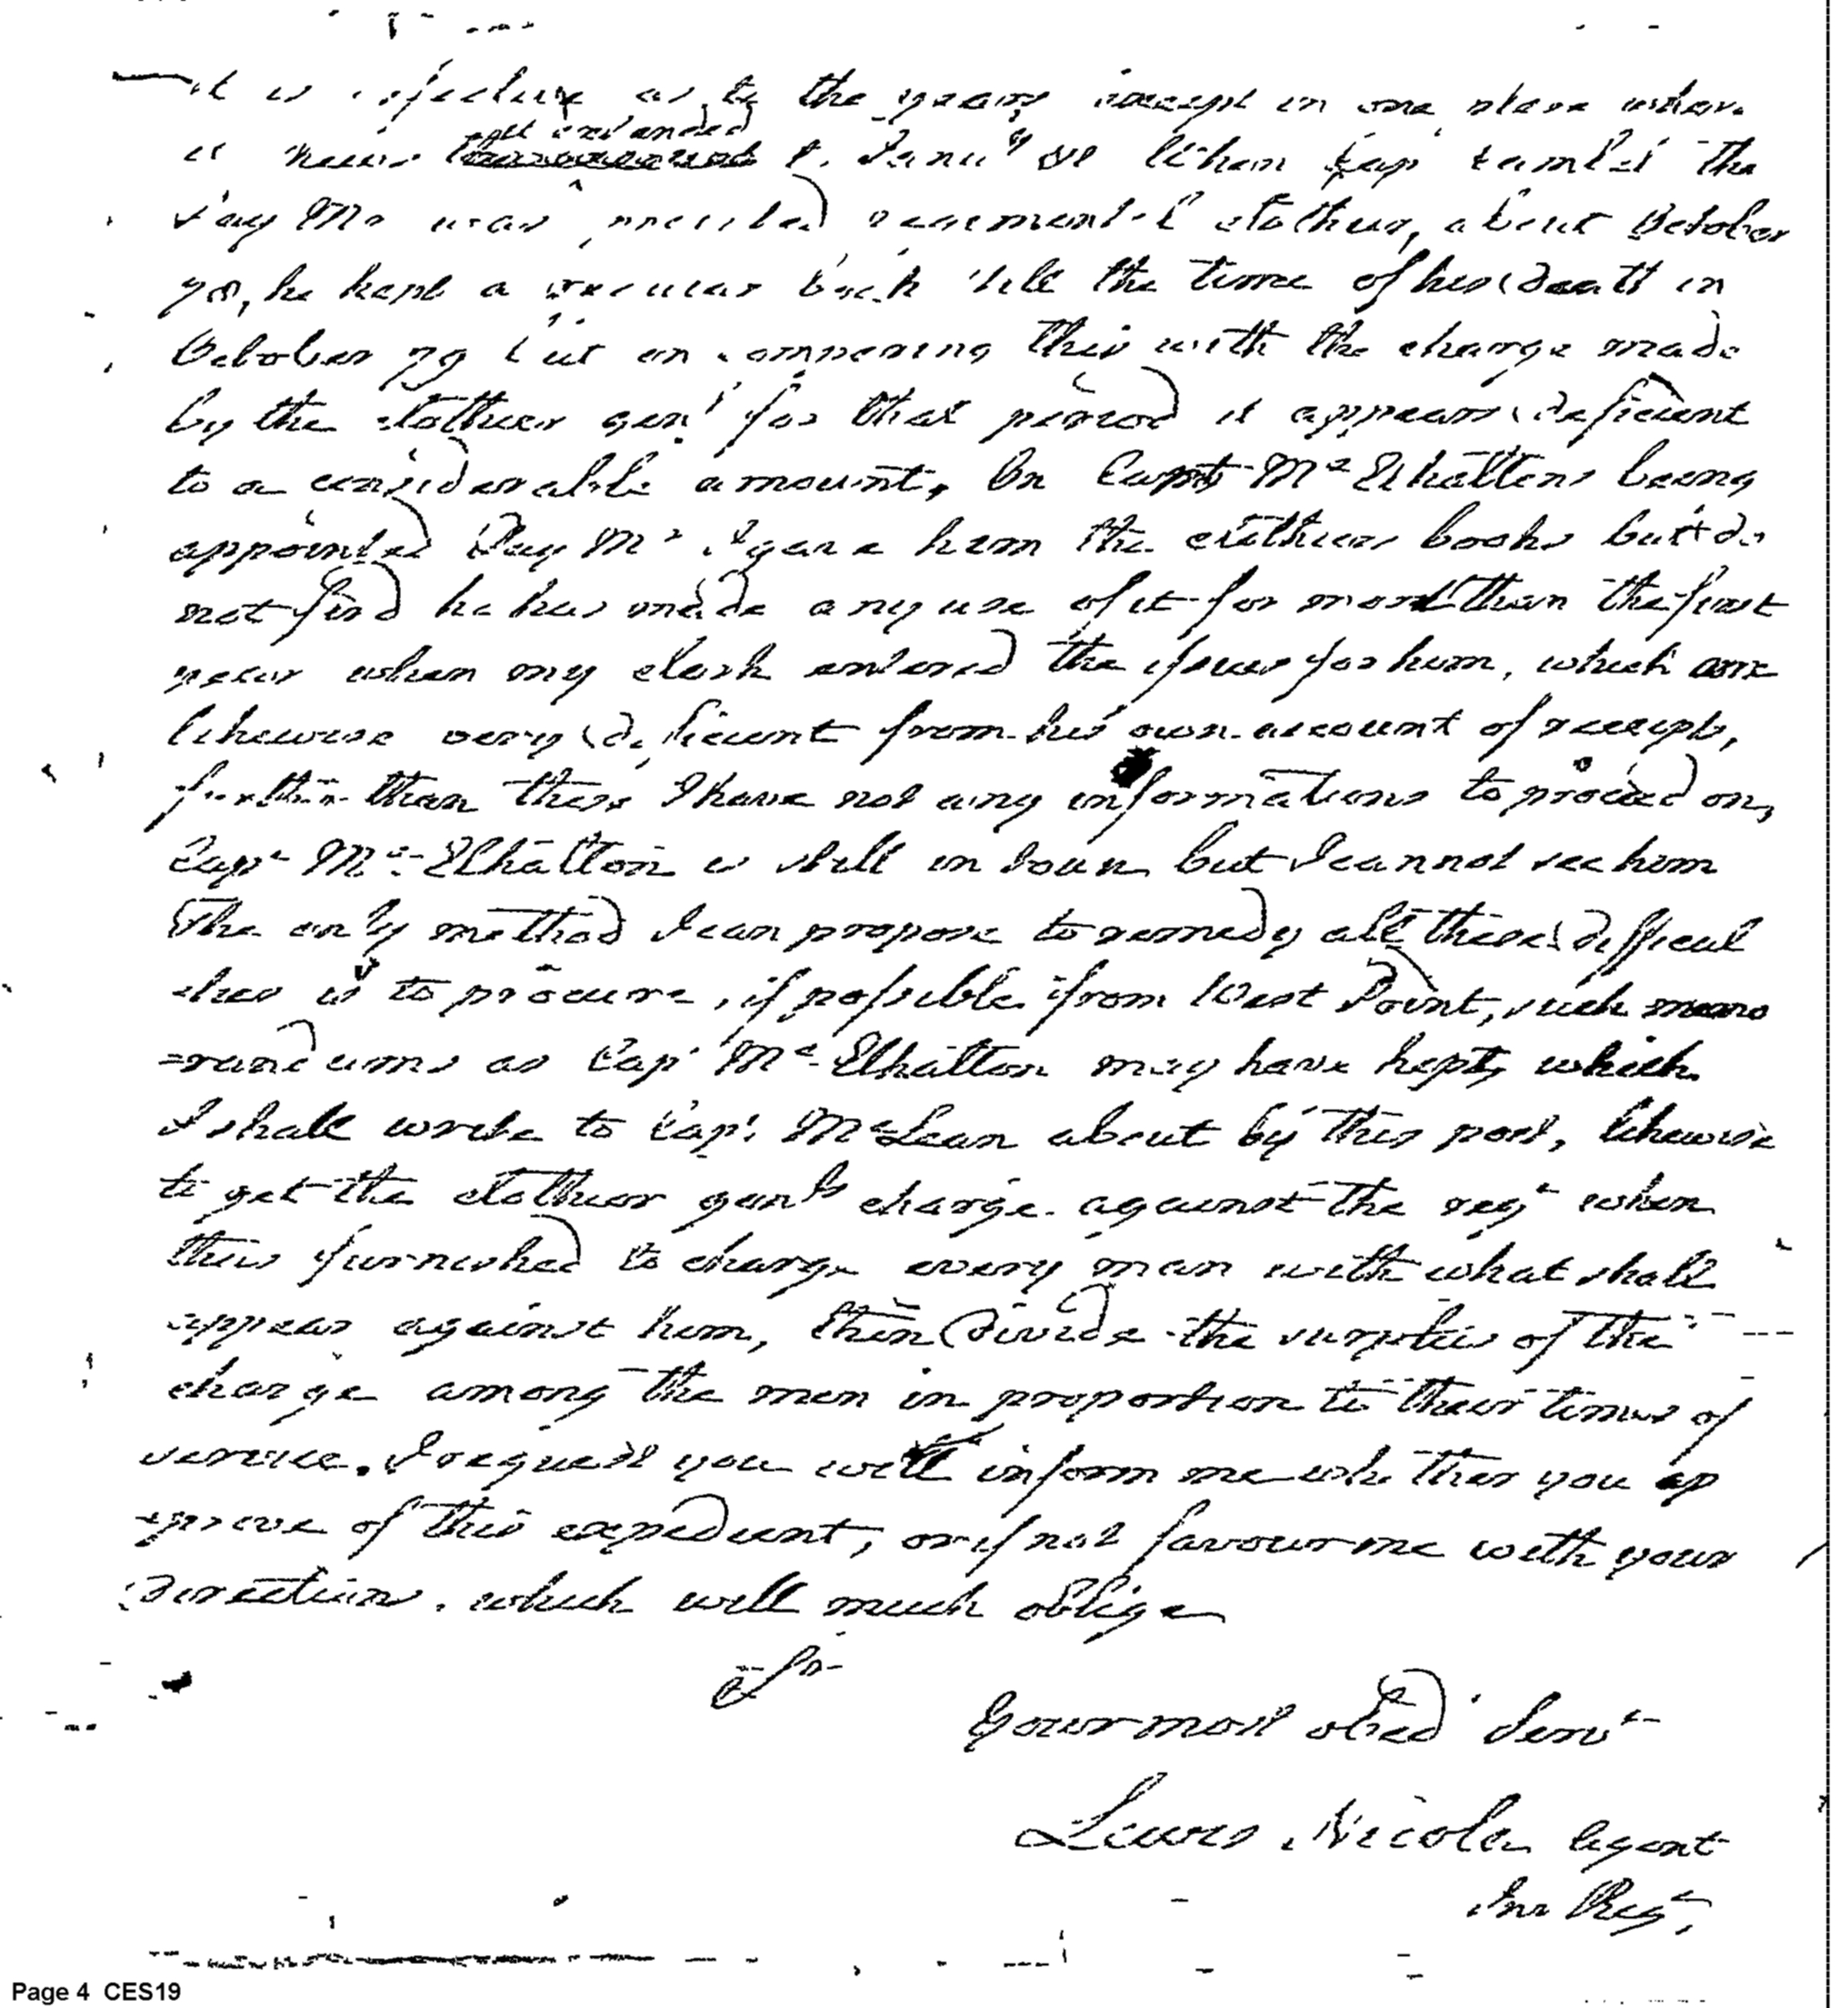 it is defective as to the years except in one place where
it has expended Janu.y When Cap the
Pay Mr was regimental clothier, about October
78, he kept a regular book till the time of his death in
October 79 but on comparing this with the charge made
by the clothier gen.l for that period it appears deficient
to a considerable amount, On Capt Mc Elhattens being
appointed Pay Mr I gave him the clothier books but do
not find he has made any use of it for more than the first
year when my clerk entered the issues for him, which are
likewise very deficient from his own account of receipts,
further than these I have not any informations to proceed on,
Capt Mc Elhatton is still in town but I cannot see him
The only method I can propose to remedy all these difficul
ties is to procure, if possible from West Point, such memo
=randums as Cap.t Mc Elhatton may have kept, which
I shall write to Cap.t McLean about by this post, likewise
to get the clothier gen.ls charge against the reg.t when
this furnished to charge every man with what shall
appear against him, then divide the surplus of the
charge among the men in proportion to their times of
service. I request you will inform me whether you ap
=prove of this expedient, or if not favour me with your
directions, which will much oblige
Sr
Your most obed.t Serv.t
Lewis Nicola Agent
Inv Reg.t
Page 4 CES19